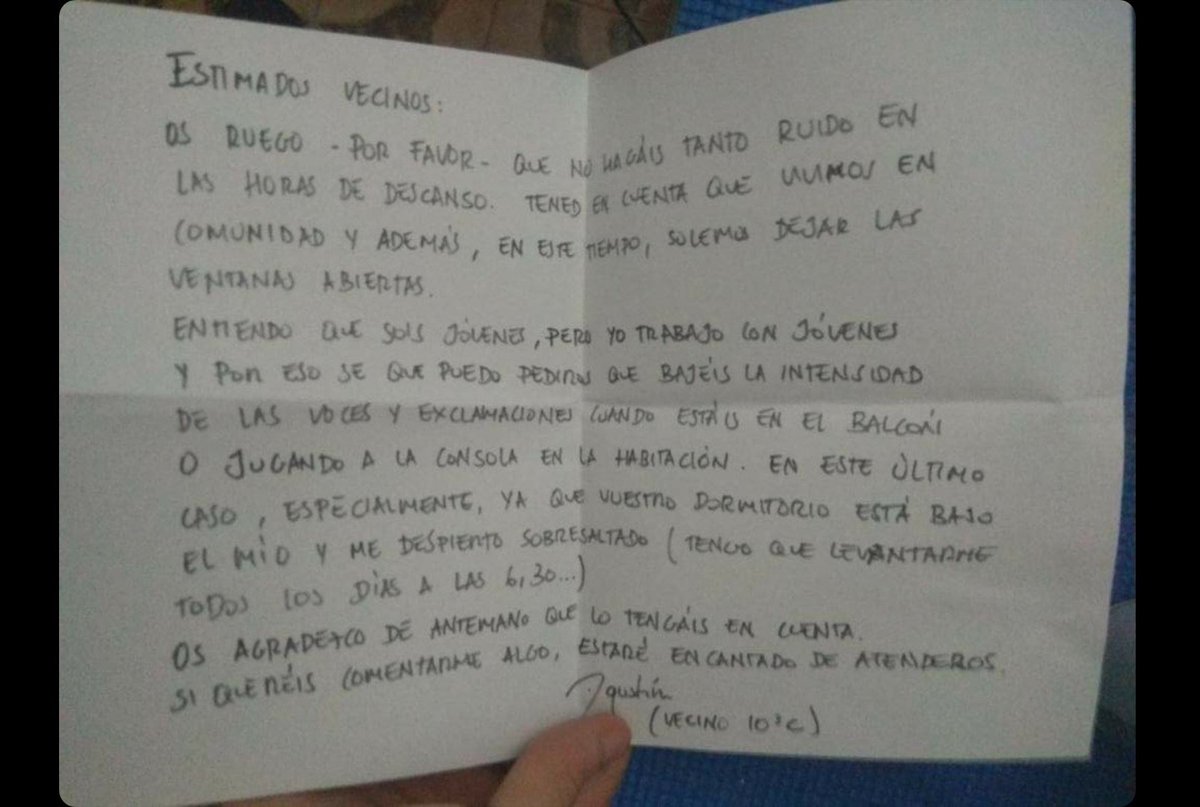 ESTIMADOS VECINOS:
OS RUEGO - POR FAVOR - QUE NO HAGÁIS TANTO RUIDO EN
LAS HORAS DE DESCANSO. TENED EN CUENTA QUE VIVIMOS EN
COMUNIDAD Y ADEMÁS, EN ESTE TIEMPO, SOLEMOS DEJAR LAS
VENTANAS ABIERTAS.
ENTIENDO QUE SOIS JÓVENES, PERO YO TRABAJO CON JÓVENES
Y POR ESO SE QUE PUEDO PEDIROS QUE BAJÉIS LA INTENSIDAD
DE LAS VOCES Y EXCLAMACIONES CUANDO ESTÁIS EN EL BALCÓN
O JUGANDO A LA CONSOLA EN LA HABITACIÓN. EN ESTE ÚLTIMO
CASO, ESPECIALMENTE, YA QUE VUESTRO DORMITORIO ESTÁ BAJO
EL MÍO Y ME DESPIERTO SOBRESALTADO (TENGO QUE LEVANTARME
TODOS LOS DÍAS A LAS 6,30...)
OS AGRADEZCO DE ANTEMANO QUE LO TENGÁIS EN CUENTA.
SI QUERÉIS COMENTARME ALGO, ESTARÉ ENCANTADO DE ATENDEROS.
Agustín
(VECINO 10º C)